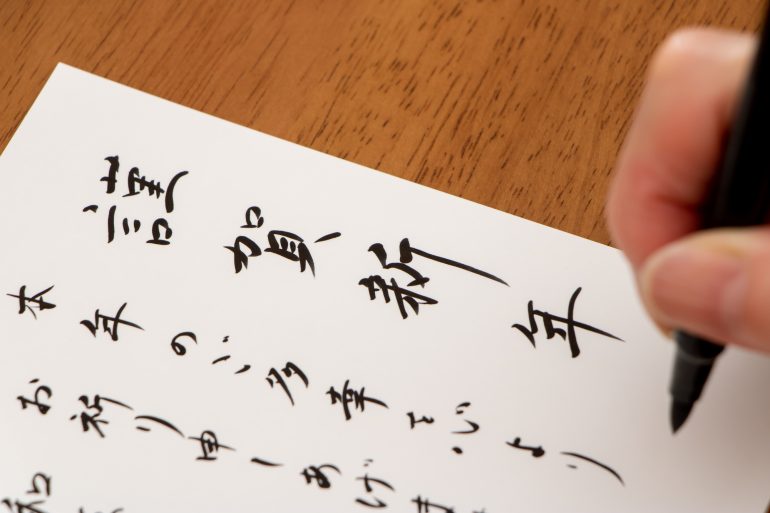 謹賀新年
本年のご多幸を心より
お祈り申しあげま
和